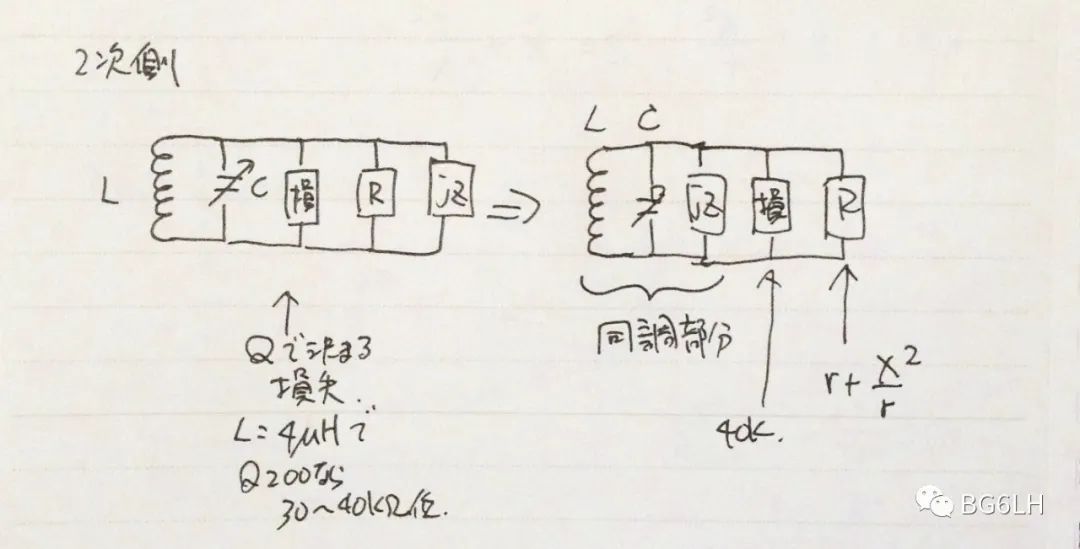 2次側
L
C
損
R
jZ
⇒
L C
jZ
損
R
同調部分
Qで決まる
損失.
L=4μHで
Q200なら
30~40kΩ位.
40k.
r+X²/r
BG6LH